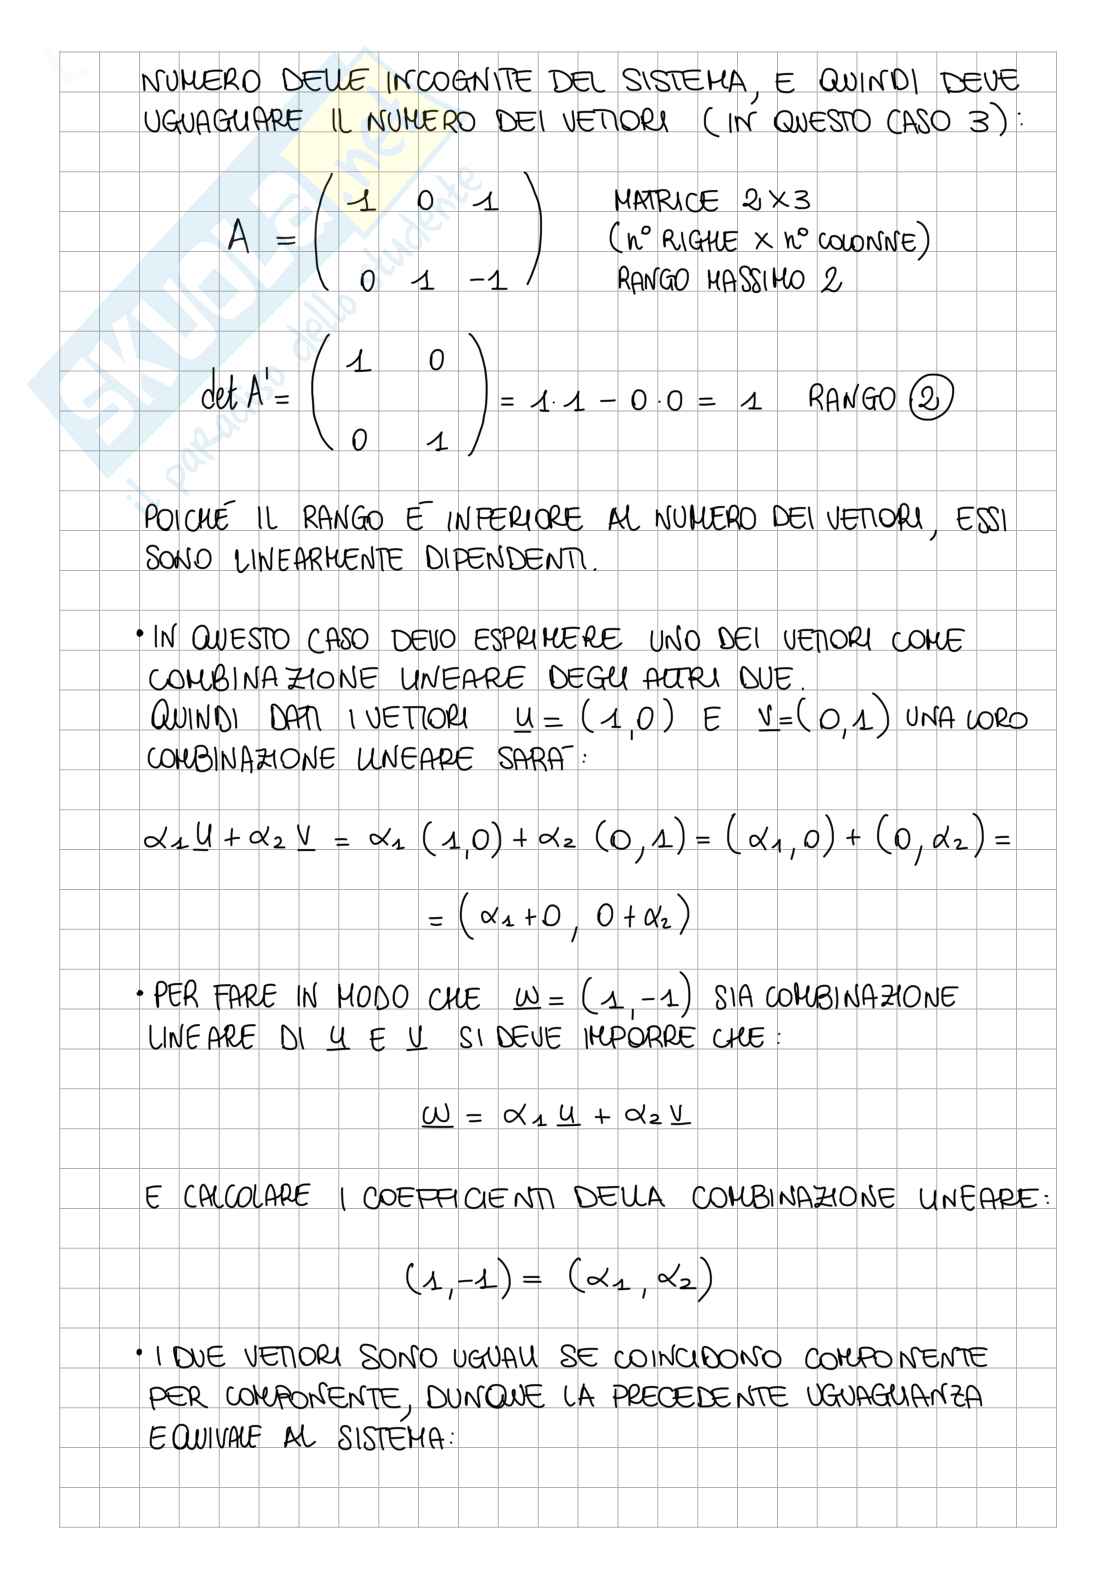 NUMERO DELLE INCOGNITE DEL SISTEMA, E QUINDI DEVE
UGUAGLIARE IL NUMERO DEI VETTORI (IN QUESTO CASO 3):
A = ( 1 0 1
0 1 -1 )
MATRICE 2X3
(n° RIGHE X n° COLONNE)
RANGO MASSIMO 2
det A' = ( 1 0
0 1 ) = 1·1 - 0·0 = 1 RANGO 2
POICHÉ IL RANGO È INFERIORE AL NUMERO DEI VETTORI, ESSI
SONO LINEARMENTE DIPENDENTI.
• IN QUESTO CASO DEVO ESPRIMERE UNO DEI VETTORI COME
COMBINAZIONE LINEARE DEGLI ALTRI DUE.
QUINDI DATI I VETTORI u = (1,0) E v=(0,1) UNA LORO
COMBINAZIONE LINEARE SARÀ:
α1 u + α2 v = α1 (1,0) + α2 (0,1) = (α1,0) + (0,α2) =
= (α1+0, 0+α2)
• PER FARE IN MODO CHE w = (1,-1) SIA COMBINAZIONE
LINEARE DI u E v SI DEVE IMPORRE CHE:
w = α1 u + α2 v
E CALCOLARE I COEFFICIENTI DELLA COMBINAZIONE LINEARE:
(1,-1) = (α1, α2)
• I DUE VETTORI SONO UGUALI SE COINCIDONO COMPONENTE
PER COMPONENTE, DUNQUE LA PRECEDENTE UGUAGLIANZA
EQUIVALE AL SISTEMA:
SKUOLA.net
il paradiso dello studente